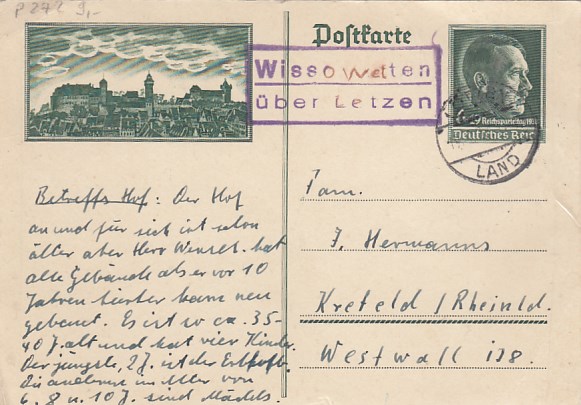 P 272 9,-
Postkarte
Wissowatten
über Letzen
Reichsparteitag 19
Deutsches Reich
LAND
Betreffs Hof: Der Hof
an und für sich ist schon
älter aber Herr Wensel hat
alte Gebäude als er vor 10
Jahren hierher kam neu
gebaut. Es ist so ca. 35-
40 J. alt und hat vier Kinder.
Der jüngste, 2 J. ist der
Die anderen im Alter von
6, 8 u. 10 J. sind Mädels.
Fam.
J. Hermanns
Krefeld / Rheinld.
Westwall 128.